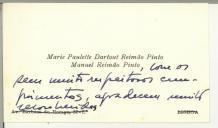 Marie Paulette Dartout Reimão Pinto
Manuel Reimão Pinto, com os
seus muito respeitosos cum-
primentos, agradecem muito
reconhecidos
Av. Barbosa du Bocage,
LISBOA